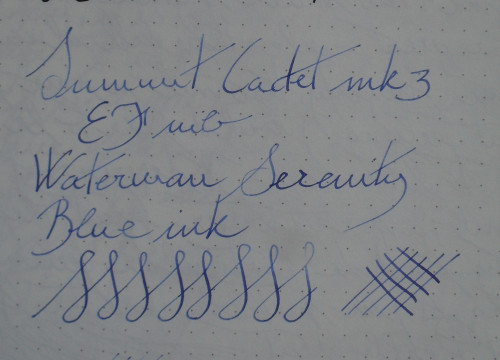 Summit Cadet mk3
EF nib
Waterman Serenity
Blue ink